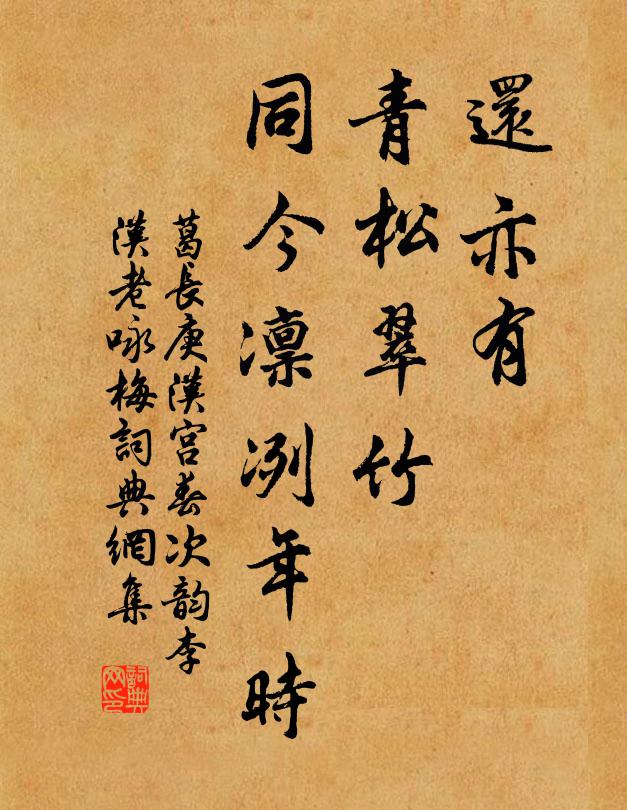 還亦有
青松翠竹
同今凛冽年時
葛長庚漢宮春次韵李
漢老咏梅詞典網集
詞典
网印